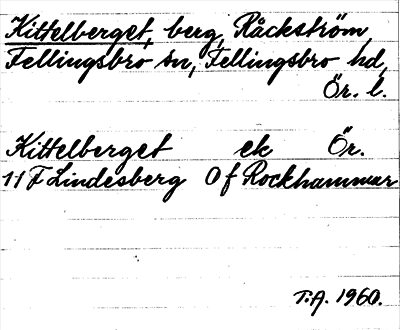 Kittelberget, berg, Råckström,
Fellingsbro sn, Fellingsbro hd,
Ör. l.
Kittelberget ek Ör.
11 F Lindesberg 0 f Rockhammar
T.A. 1960.